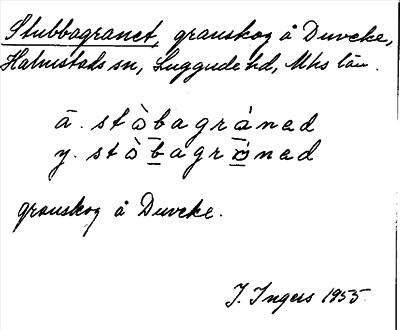 Stubbagranet, granskog å Duveke,
Halmstads sn, Luggude hd, Mhs län.
ä. stòbagránad
y. stòbagránad
granskog å Duveke.
I. Ingers 1955